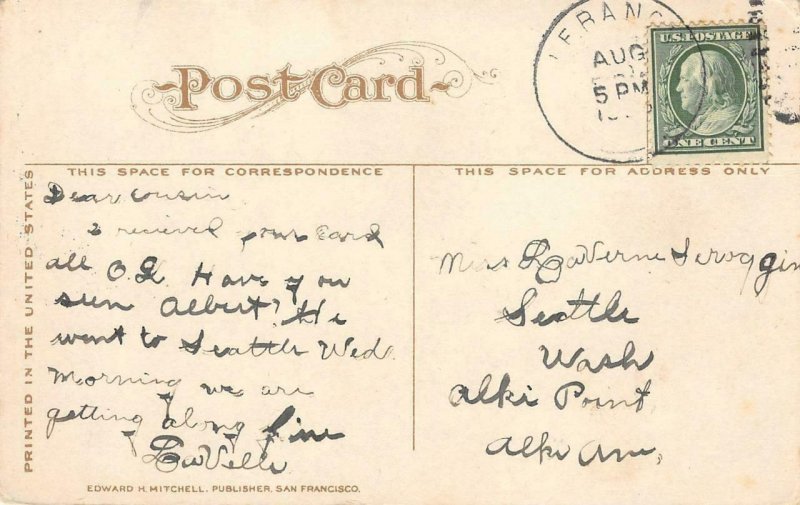 Post Card
AUG
5 PM
U.S. POSTAGE
ONE CENT
PRINTED IN THE UNITED STATES
THIS SPACE FOR CORRESPONDENCE
Dear cousin
I recieved your card
all O.K. Have you
seen Albert? He
went to Seattle Wed.
Morning we are
getting along fine
LaVelle
EDWARD H. MITCHELL, PUBLISHER, SAN FRANCISCO.
THIS SPACE FOR ADDRESS ONLY
Miss LaVerne Scroggin
Seattle
Wash
Alki Point
Alki Ave,